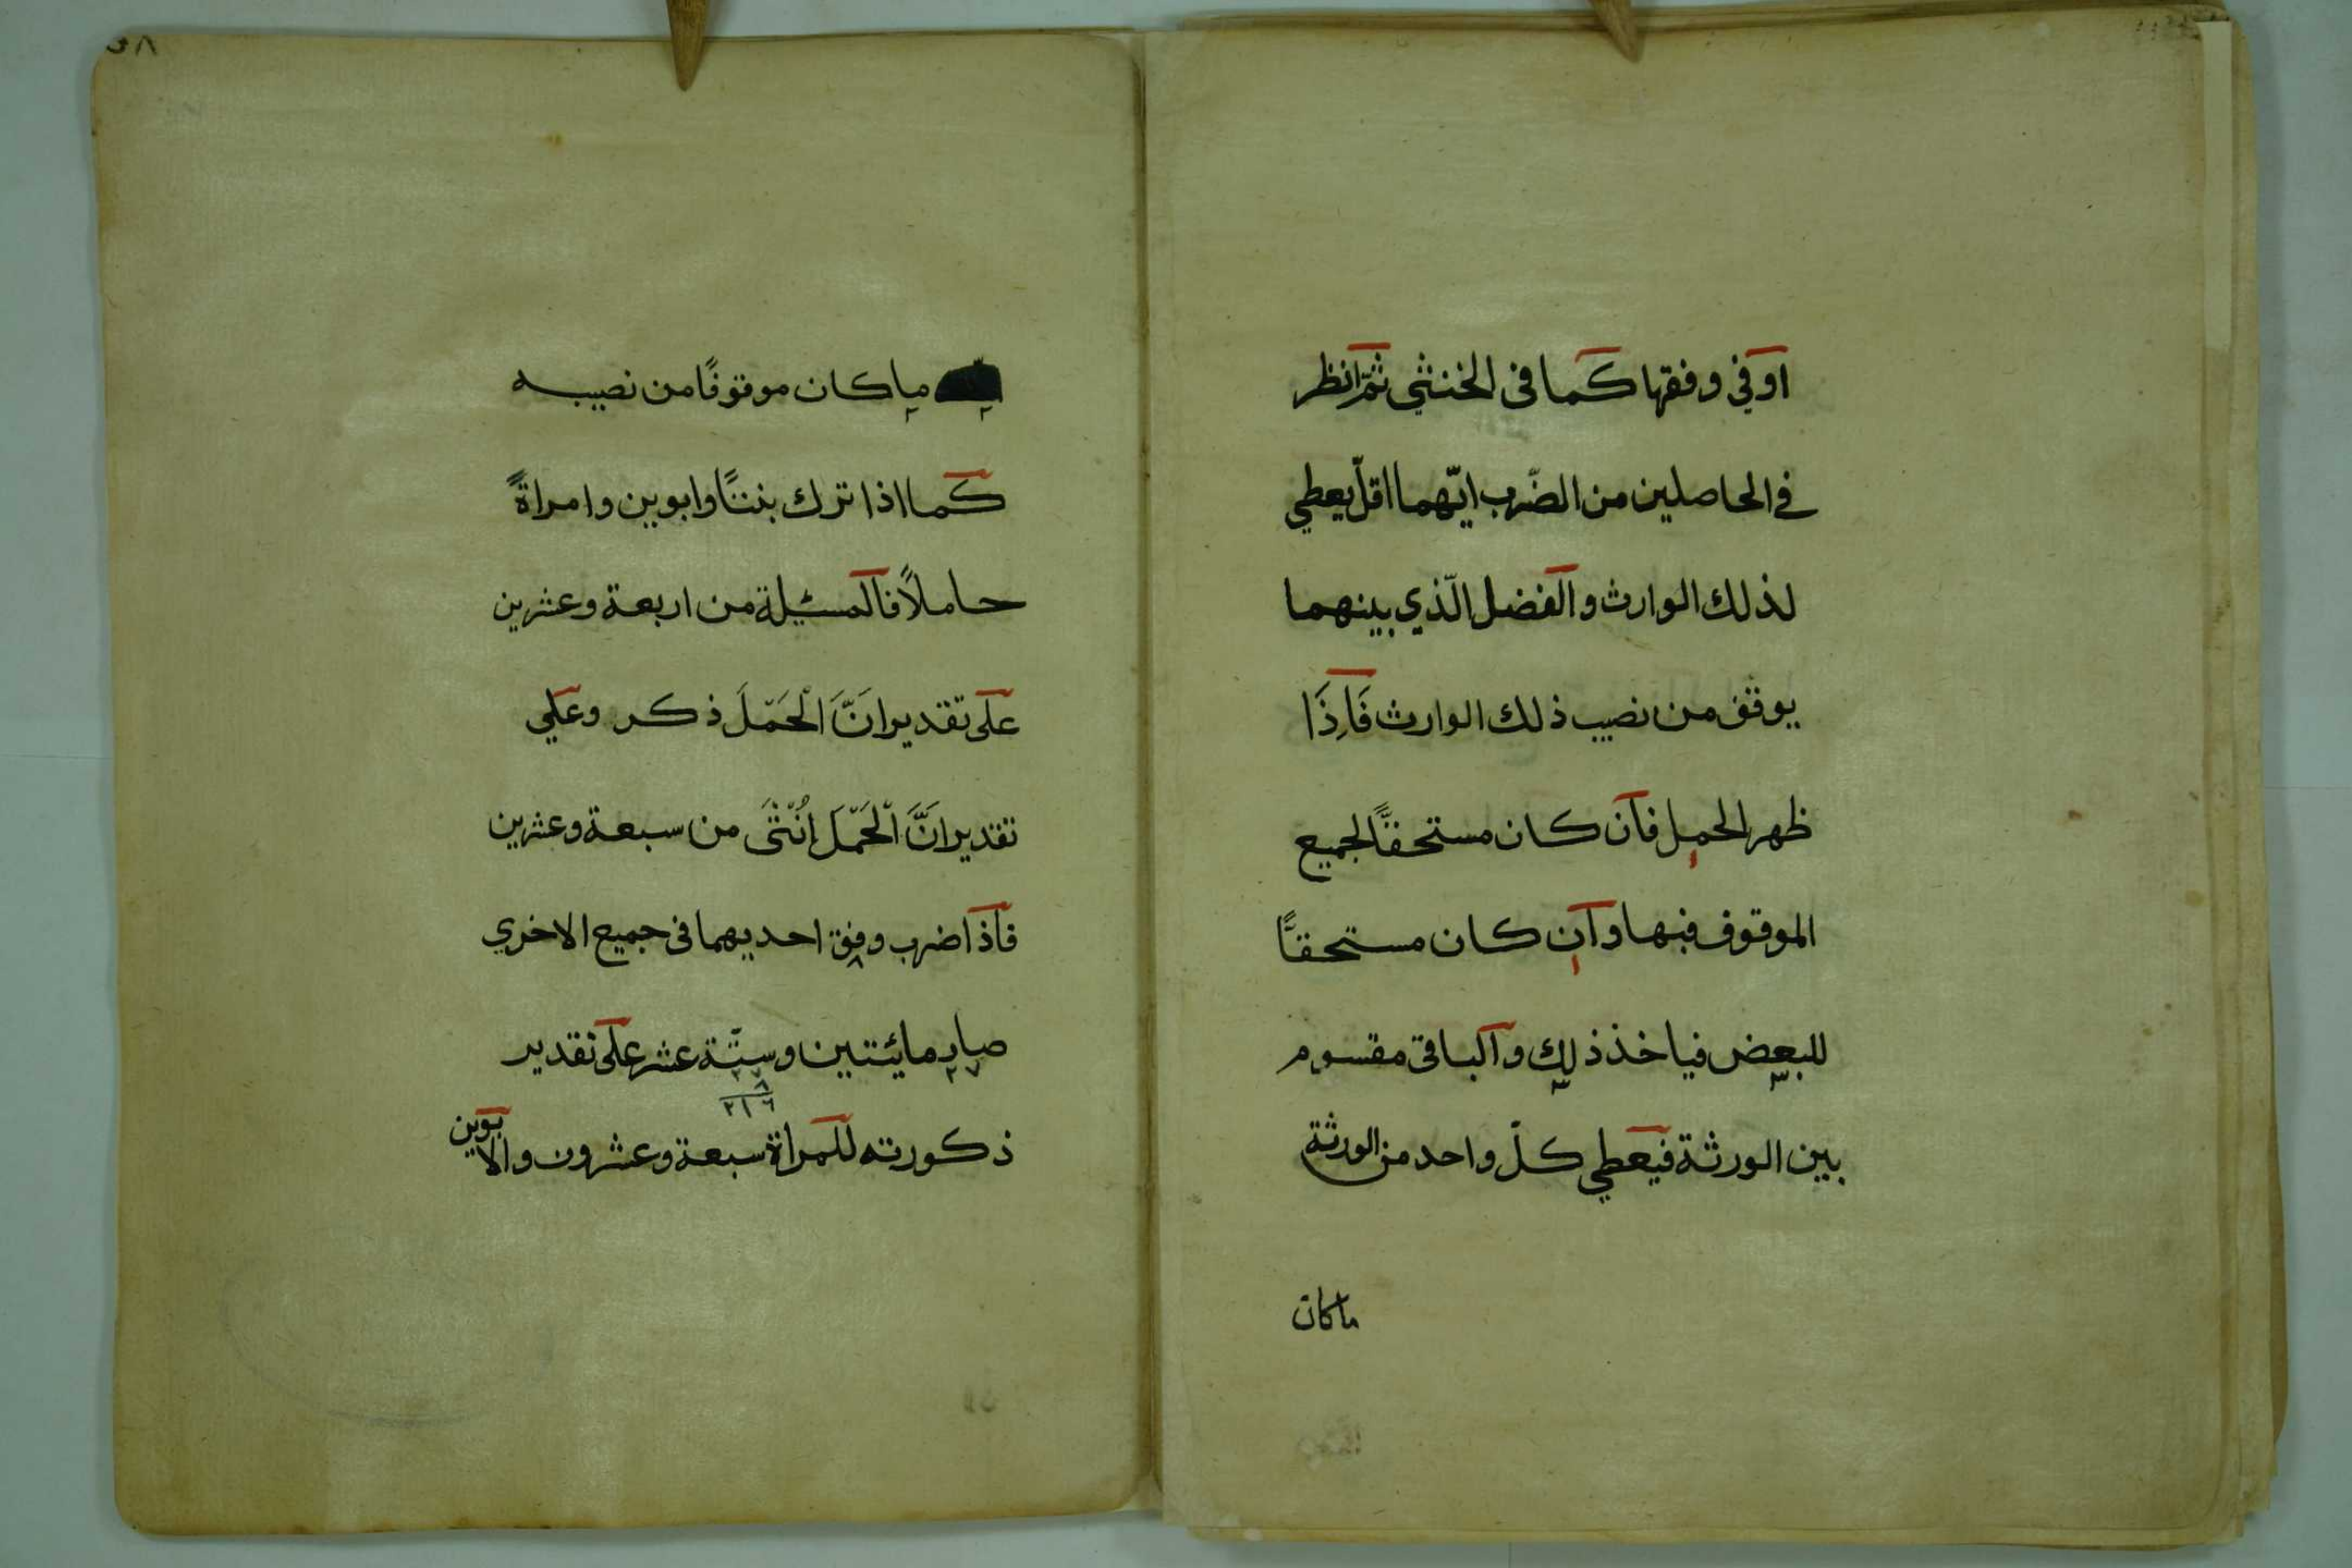 او في وفقها كما فى الخنثى ثمّ انظر
في الحاصلين من الضّرب ايّهما اقلّ يعطي
لذلك الوارث والفضل الّذي بينهما
يوقف من نصيب ذلك الوارث فَاِذَا
ظهر الحمل فان كان مستحقًّا لجميع
الموقوف فبها وان كان مستحقًّا
للبعض فياخذ ذلك والباقى مقسوم
بين الورثة فيعطي كلّ واحد من الورثة
ما كان
ما كان موقوفًا من نصيبه
كما اذا ترك بنتًا وابوين وامراةً
حاملاً فالمسئيلة من اربعة وعشرين
على تقدير انَّ الْحَمْلَ ذكر وعلي
تقدير انَّ الْحَمْلَ اُنْثَى من سبعة وعشرين
فاذا ضرب وفق احديهما فى جميع الاخري
صار مائتين وستّة عشر على تقدير
٢١٦
ذكورته للمراة سبعة وعشرون والابوين